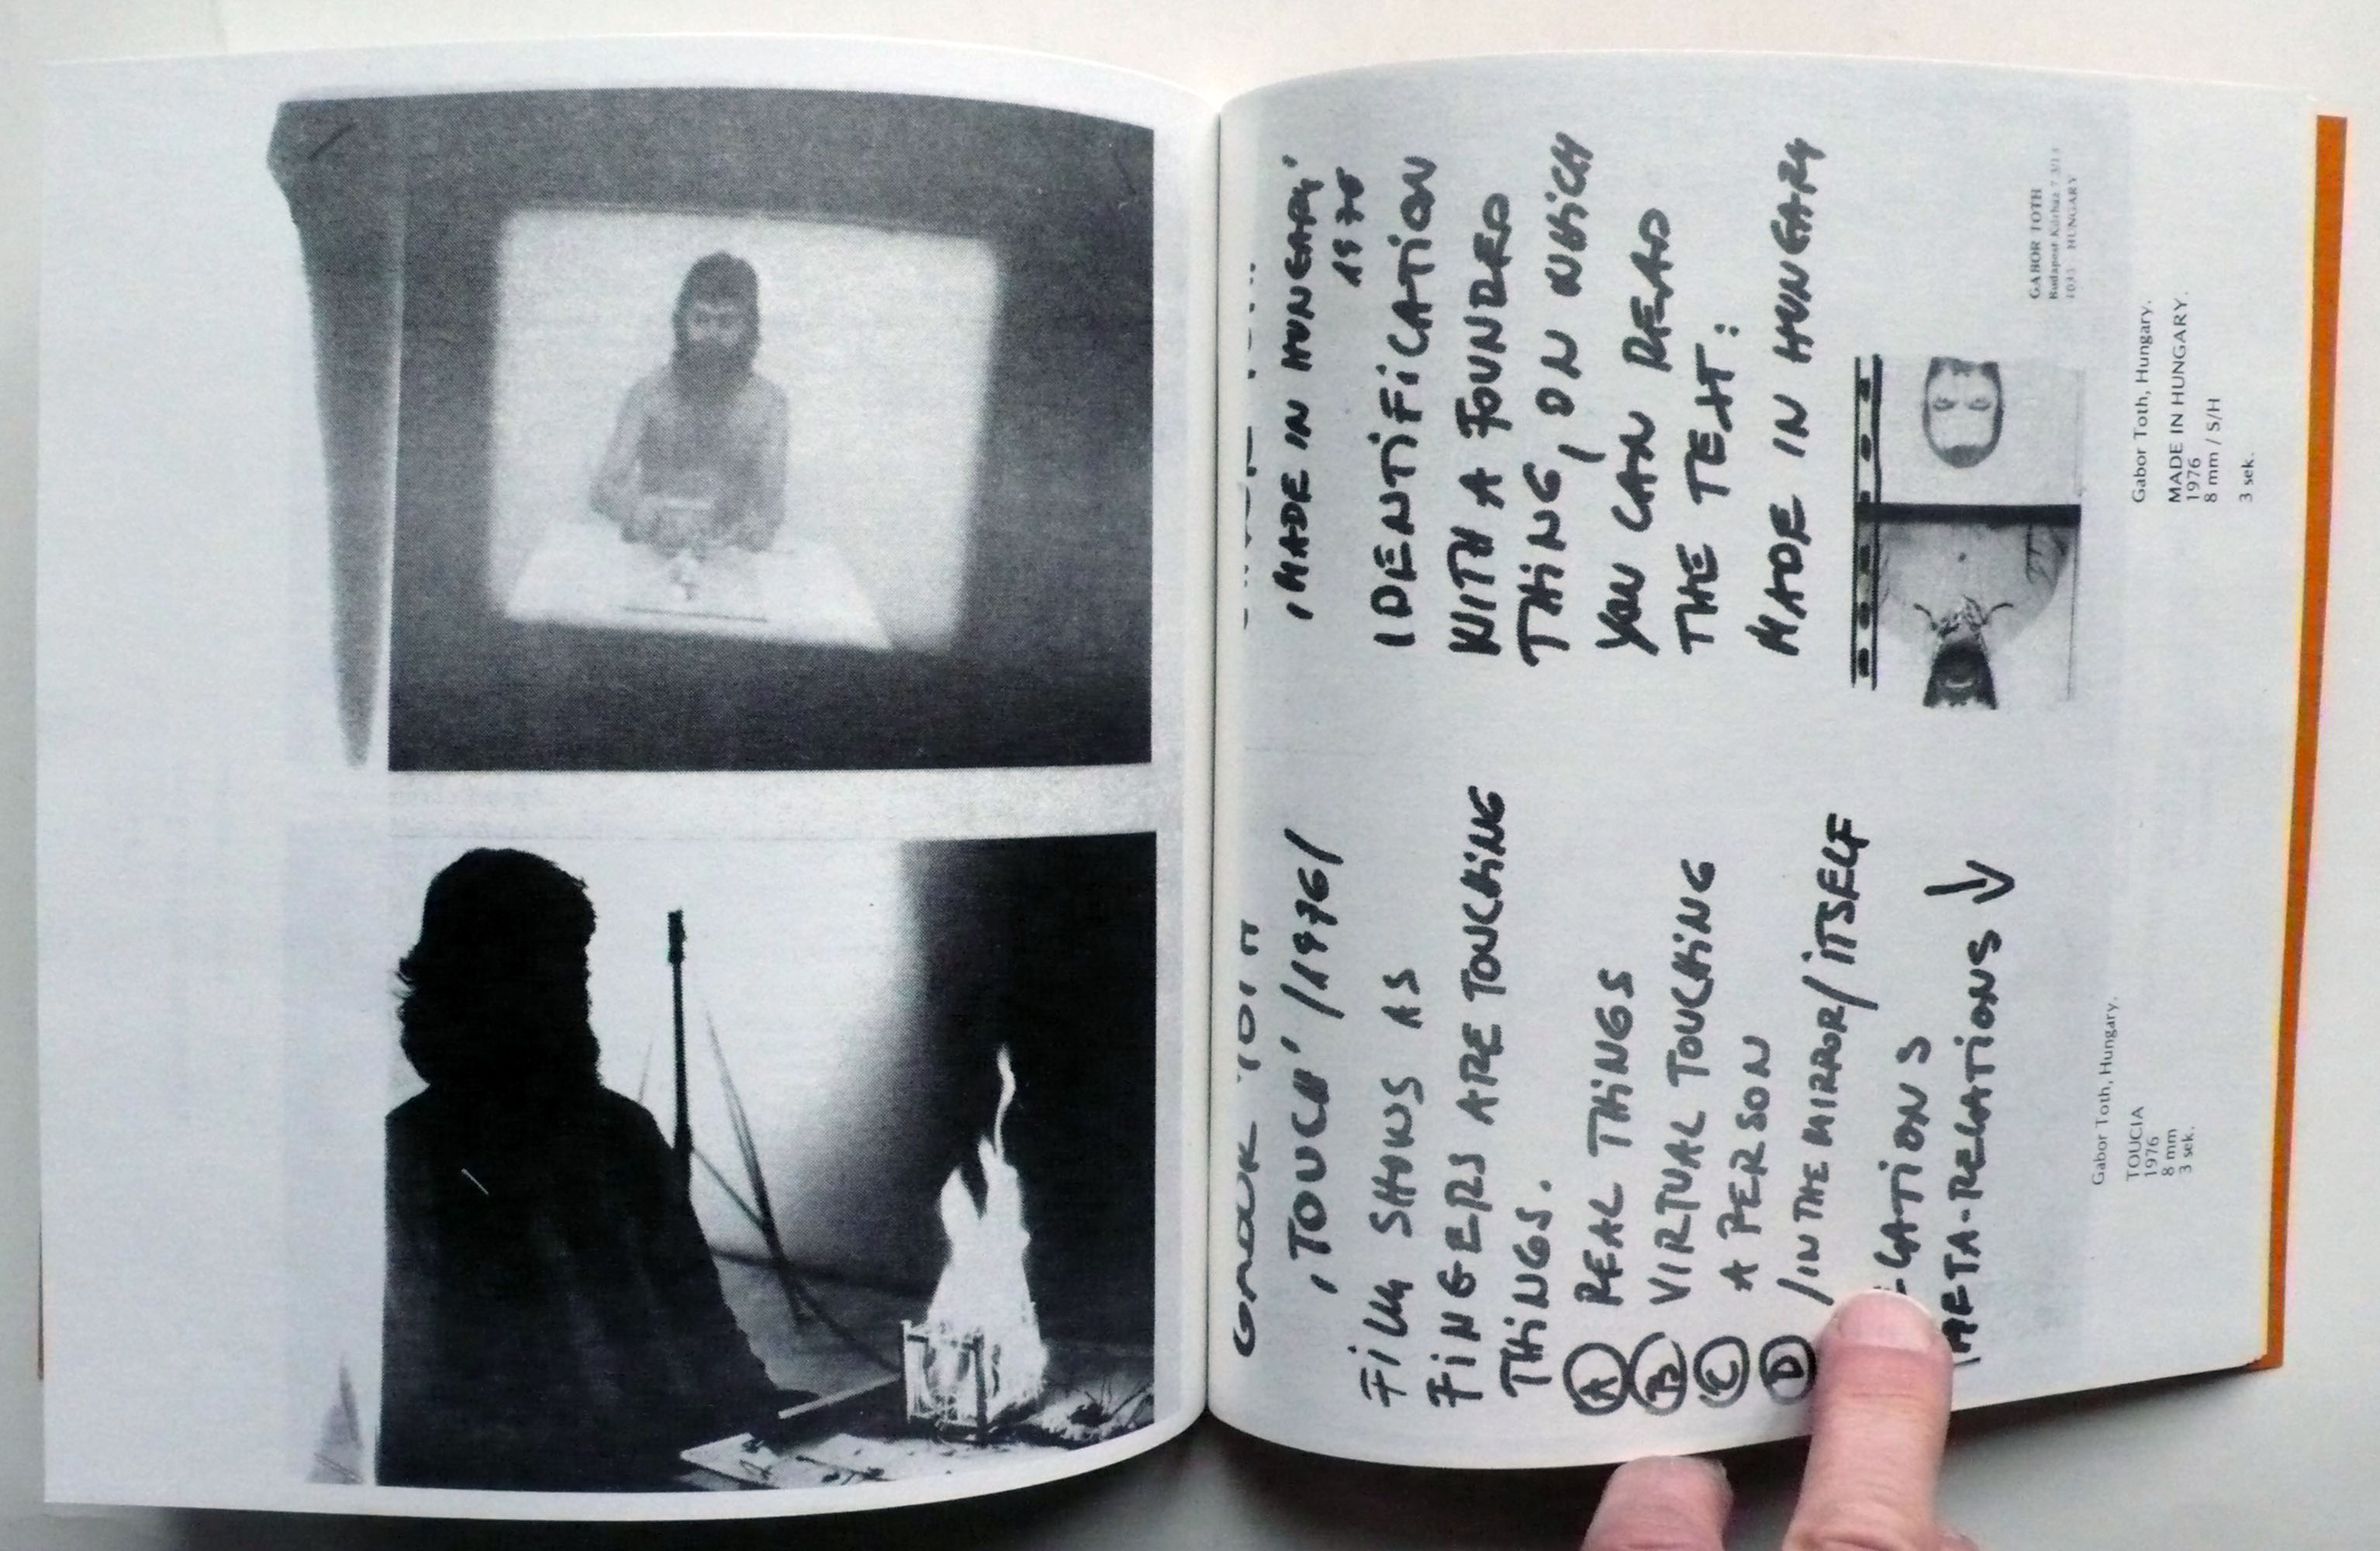 GABOR TOTH
'TOUCH' /1976/
FILM SHOWS AS
FINGERS ARE TOUCHING
THINGS.
A REAL THINGS
B VIRTUAL TOUCHING
C A PERSON
D /IN THE MIRROR/ ITSELF
META-RELATIONS ↓
Gabor Toth, Hungary.
TOUCIA
1976
8 mm
3 sek.
'MADE IN HUNGARY'
1976
IDENTIFICATION
WITH A FOUNDED
THING, ON WHICH
YOU CAN READ
THE TEXT:
MADE IN HUNGARY
GABOR TOTH
HUNGARY
Gabor Toth, Hungary.
MADE IN HUNGARY.
1976
8 mm / S/H
3 sek.